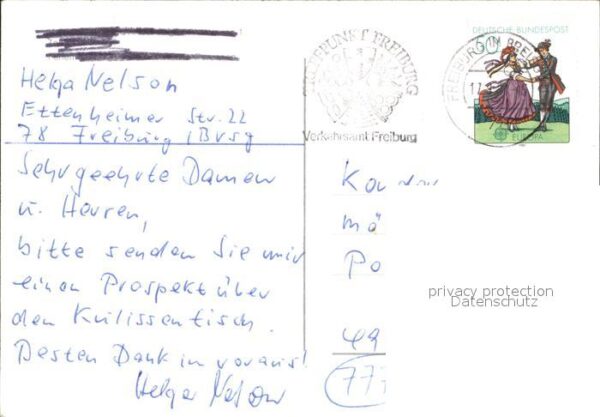 Helga Nelson
Ettenheimer Str. 22
78 Freiburg /Brsg
Sehr geehrte Damen
u. Herren,
bitte senden Sie mir
einen Prospekt über
den Kulissentisch.
Besten Dank im voraus!
Helga Nelson
TREFFPUNKT FREIBURG
Verkehrsamt Freiburg
DEUTSCHE BUNDESPOST
50
FREIBURG IM BREI
EUROPA
Ko
mö
Po
privacy protection
Datenschutz
49
777